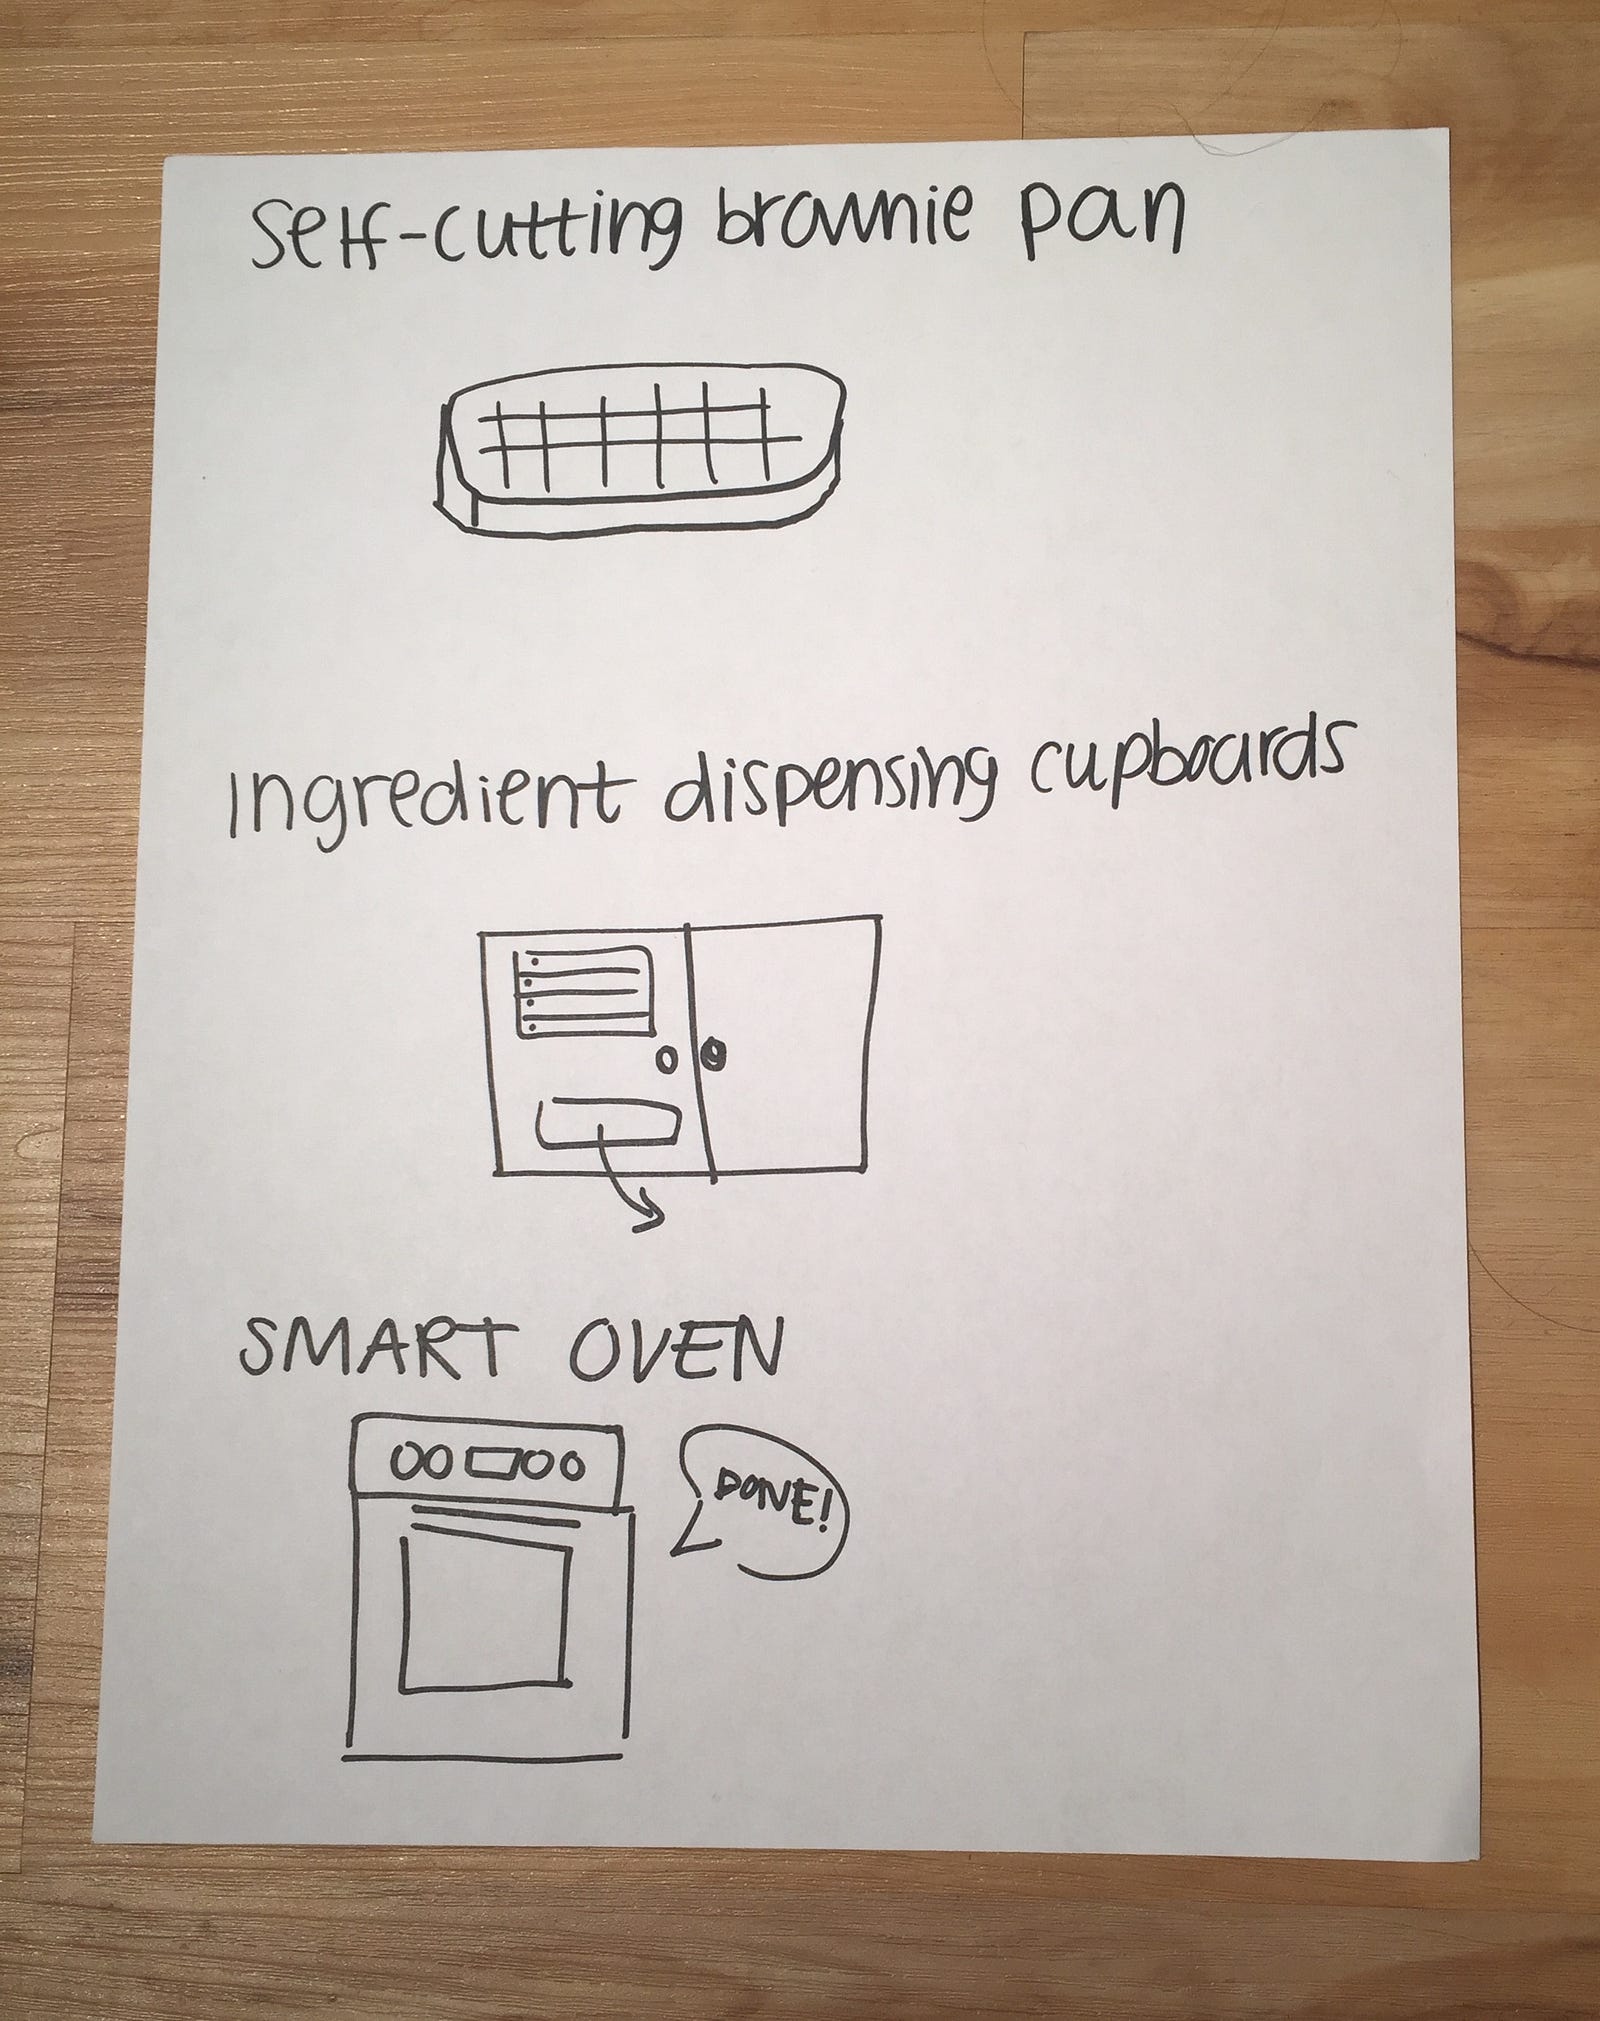 Self-cutting brownie pan
Ingredient dispensing cupboards
SMART OVEN
DONE!